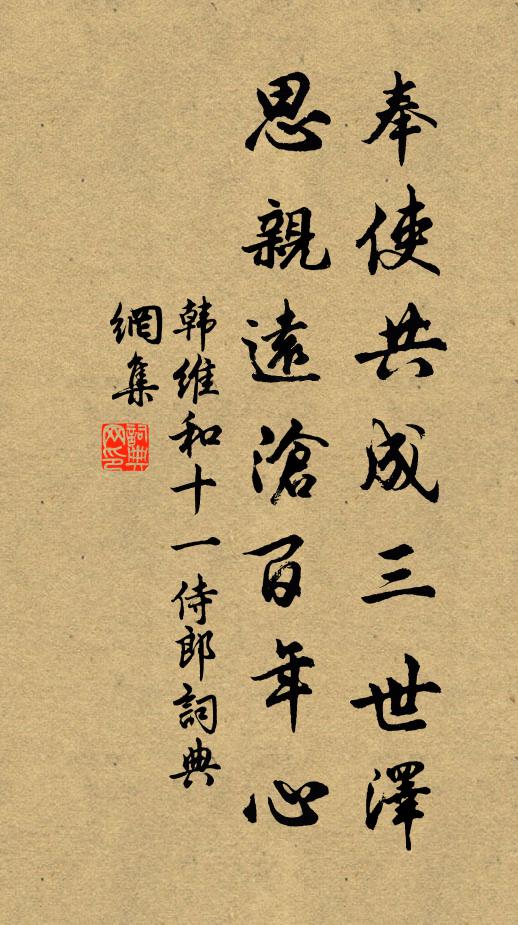 奉使共成三世澤
思親遠滄百年心
韩維和十一侍郎詞典
網集
詞典網印